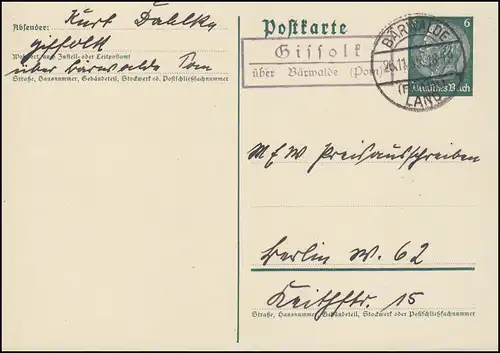 Absender: Kurt Dahlke
Gissolk
Wohnort, auch Zustell- oder Leitpostamt
über Bärwalde Pom
Straße, Hausnummer, Gebäudeteil, Stockwerk od. Postschließfachnummer
Postkarte
Gissolk
über Bärwalde (Pom)
BÄRWALDE
26.11.
LAND
6
Deutsches Reich
M f W Preisausschreiben
Berlin W. 62
Keithstr. 15
Straße, Hausnummer, Gebäudeteil, Stockwerk oder Postschließfachnummer